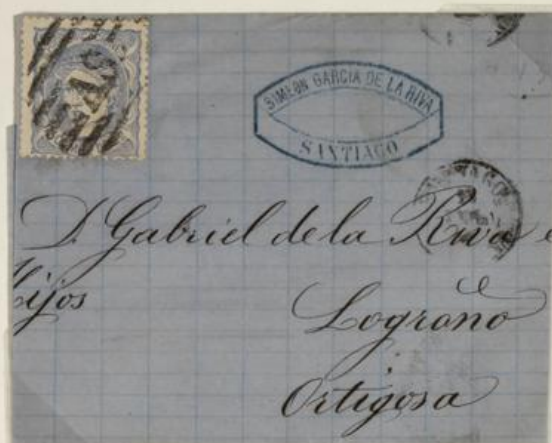 SIMEON GARCIA DE LA RIVA
SANTIAGO
D. Gabriel de la Riva e
Hijos
Logroño
Ortigosa